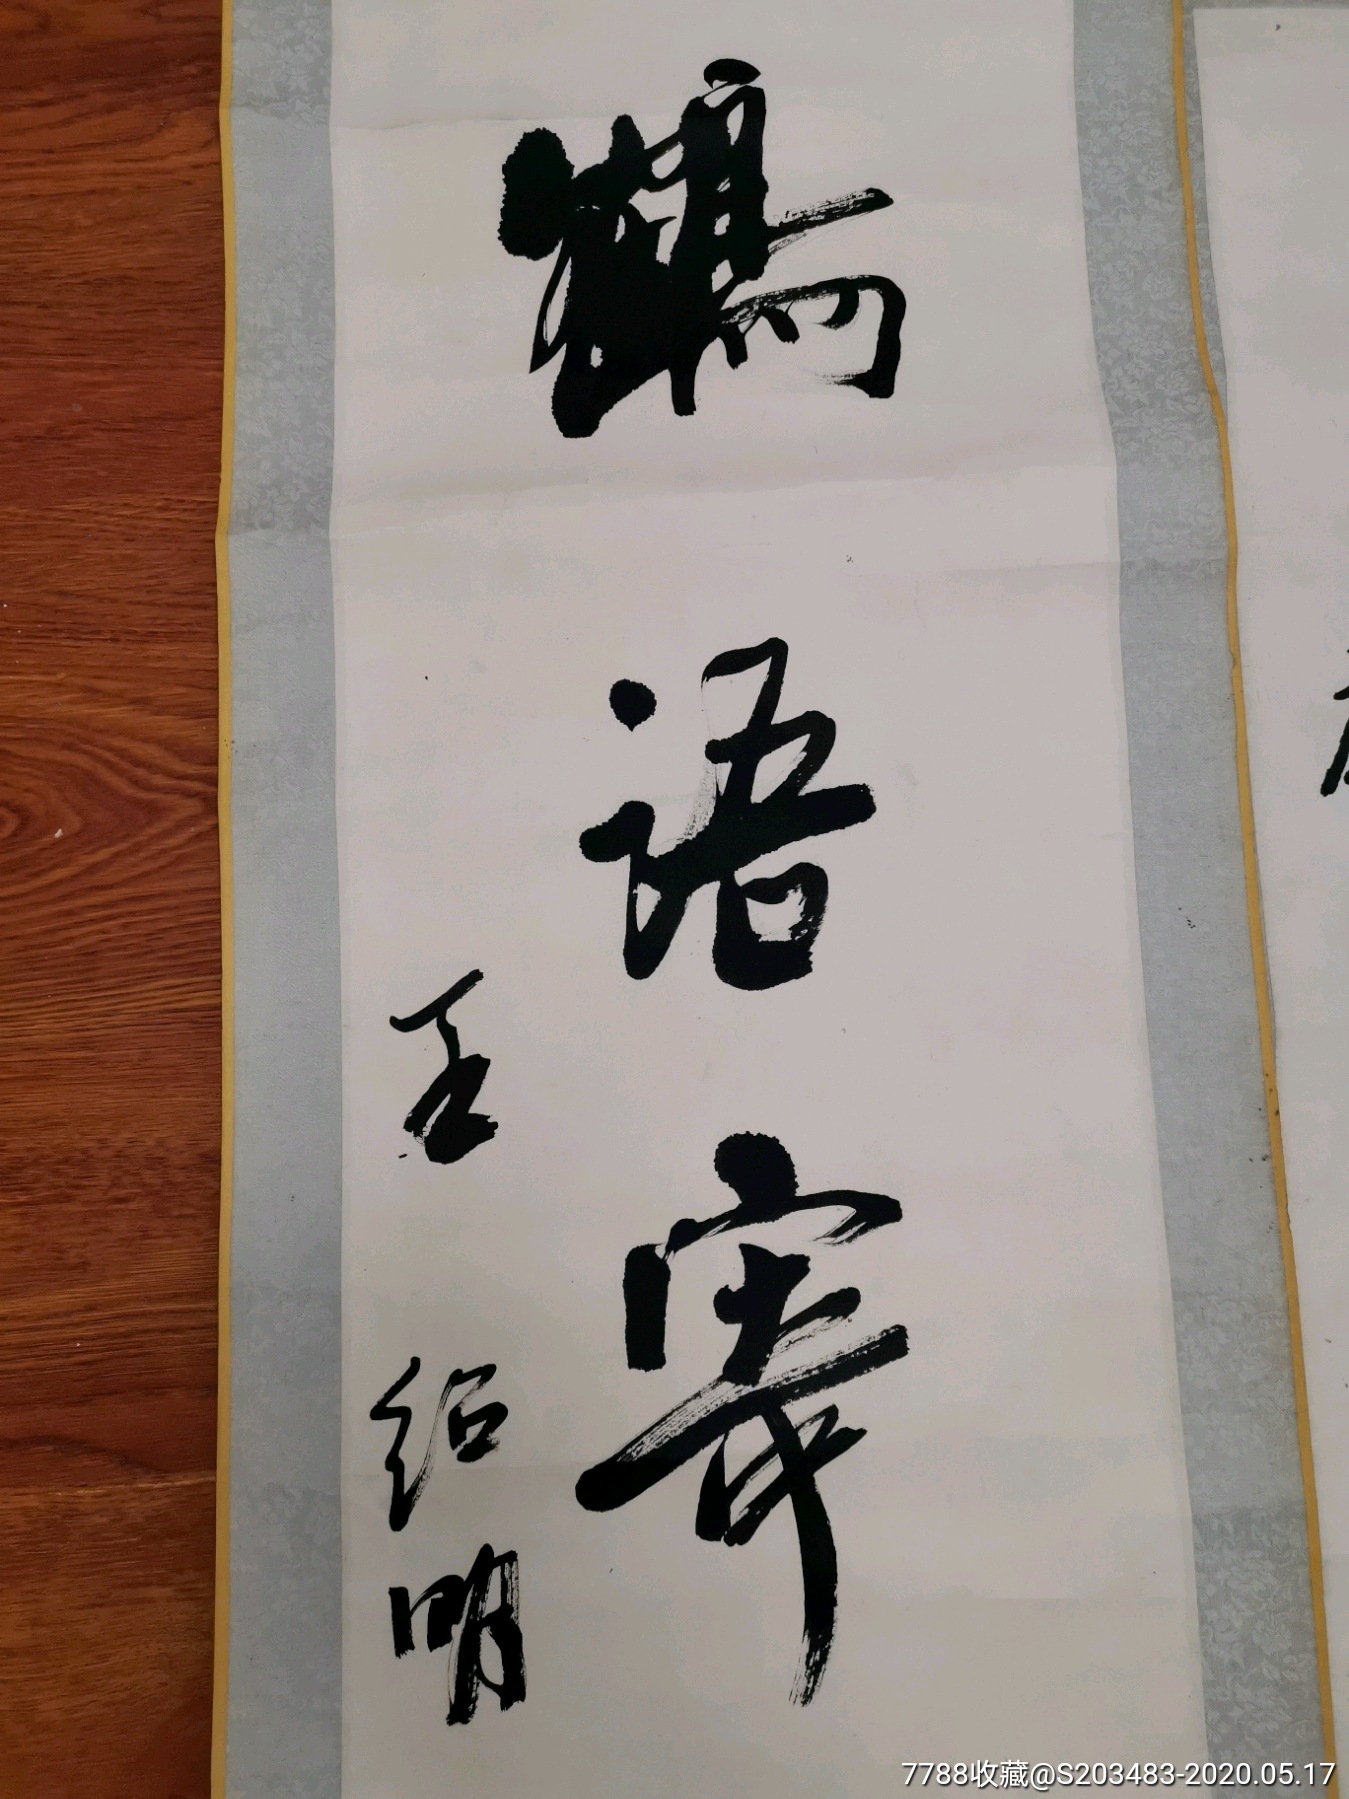 鶴
语
寄
王
绍
明
7788收藏@S203483-2020.05.17